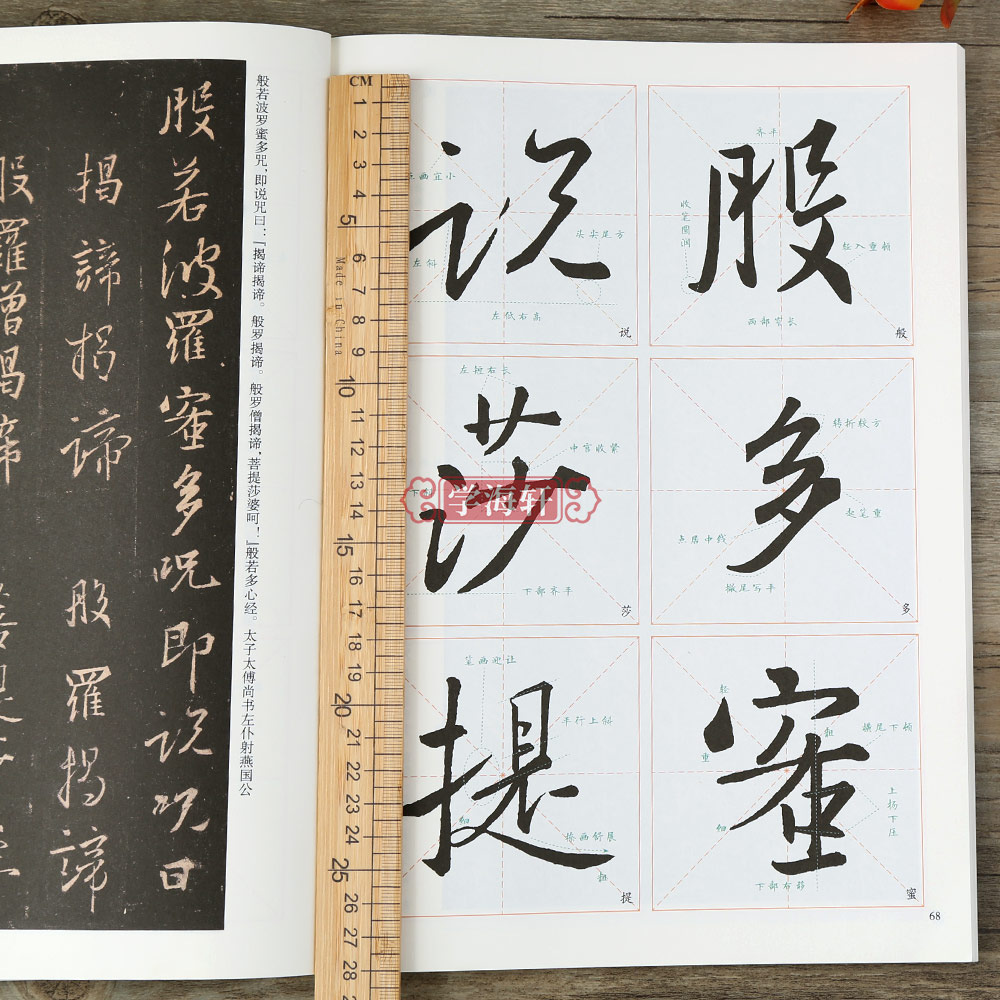 般若波羅蜜多呪即説呪曰
揭諦揭諦 般羅揭諦
般羅僧揭諦
般若波罗蜜多咒，即说咒曰：『揭谛揭谛。般罗揭谛。般罗僧揭谛，菩提莎婆呵！』般若多心经。太子太傅尚书左仆射燕国公
般
齐平
收笔圆润
轻入重顿
两部窄长
般
説
点画宜小
头尖尾方
左斜
左低右高
说
多
转折较方
起笔重
点居中线
撇尾写平
多
莎
左短右长
中宫收紧
下部齐平
莎
蜜
轻
重
粗
横尾下顿
细
上扬下压
下部布排
蜜
提
笔画迎让
平行上斜
细
捺画舒展
粗
提
68
学海轩
CM
1
2
3
4
5
6
7
8
9
10
11
12
13
14
15
16
17
18
19
20
21
22
23
24
25
26
27
28
Made in China